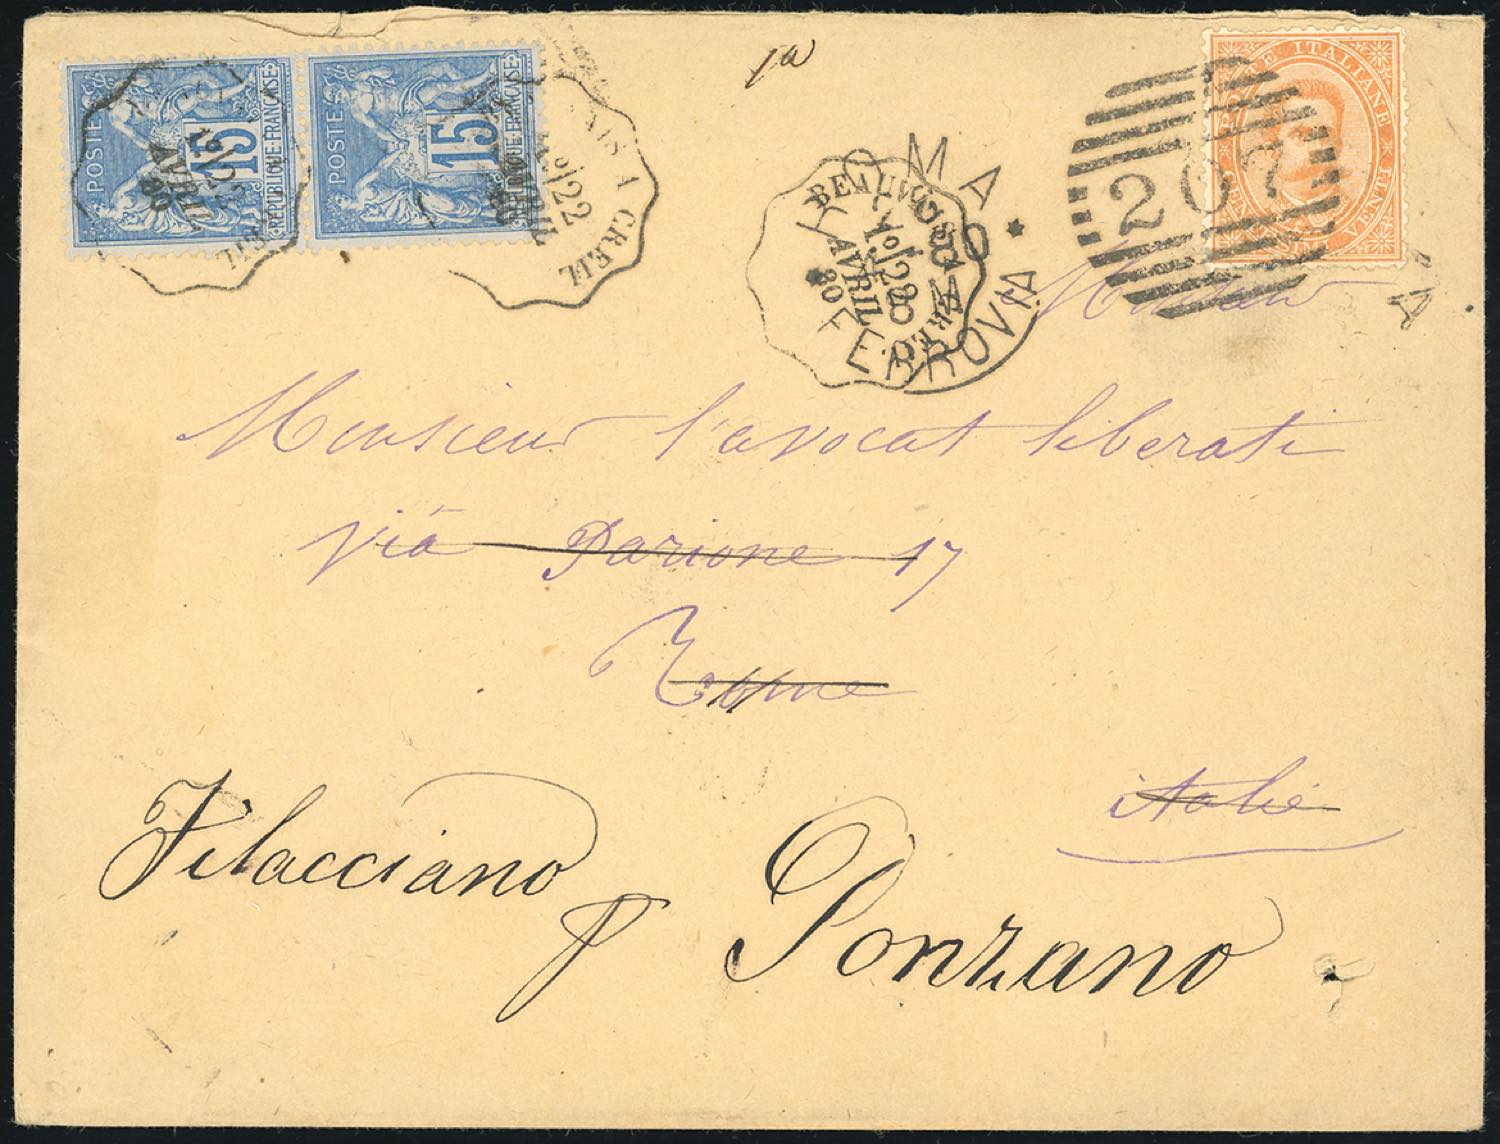 POSTE 15 RÉPUBLIQUE FRANÇAISE
POSTE 15 RÉPUBLIQUE FRANÇAISE
22 AVRIL 80
22 AVRIL
A CREIL
1a
ROMA
FERROVIA
BEAUVAIS A CREIL
22
AVRIL
80
POSTE ITALIANE
VENTI
267
Monsieur
Monsieur l'avocat liberati
viâ Parione 17
Rome
italie
Filacciano p Ponzano